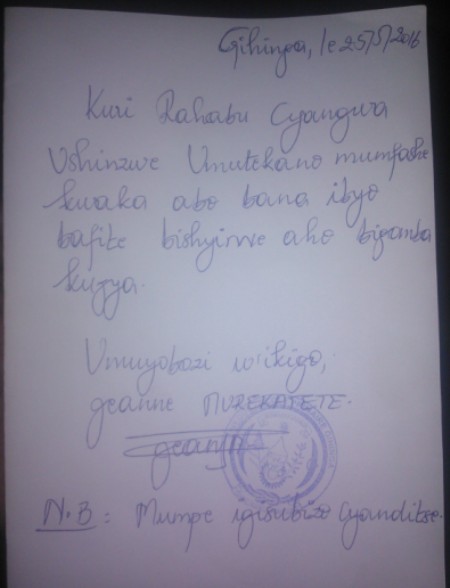 Gihinga, le 25/5/2016
Kuri Rahabu Cyangwa
Ushinzwe Umutekano mumfashe
kwaka abo bana ibyo
bafite bishyirwe aho bigomba
kujya.
Umuyobozi w'ikigo,
geanne MUREKATETE.
N.B: Mumpe igisubizo cyanditse.